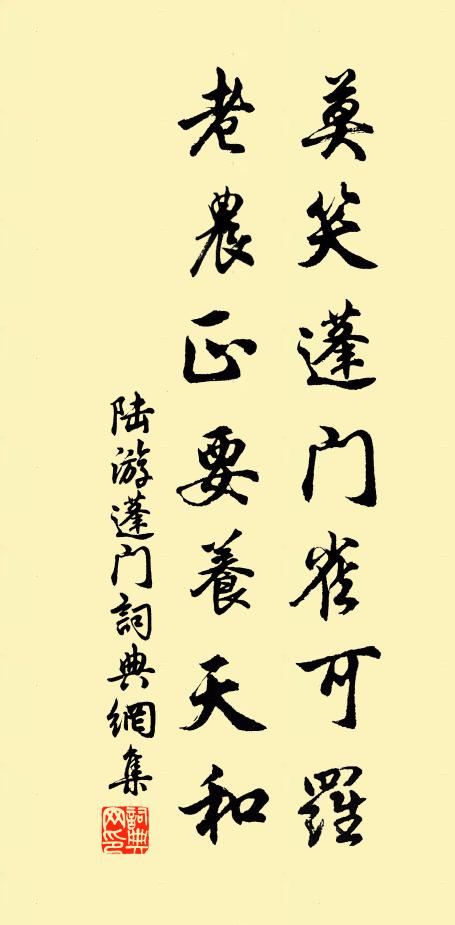 莫笑蓬门雀可羅
老農正要養天和
陆游蓬门詞典網集
詞典網印